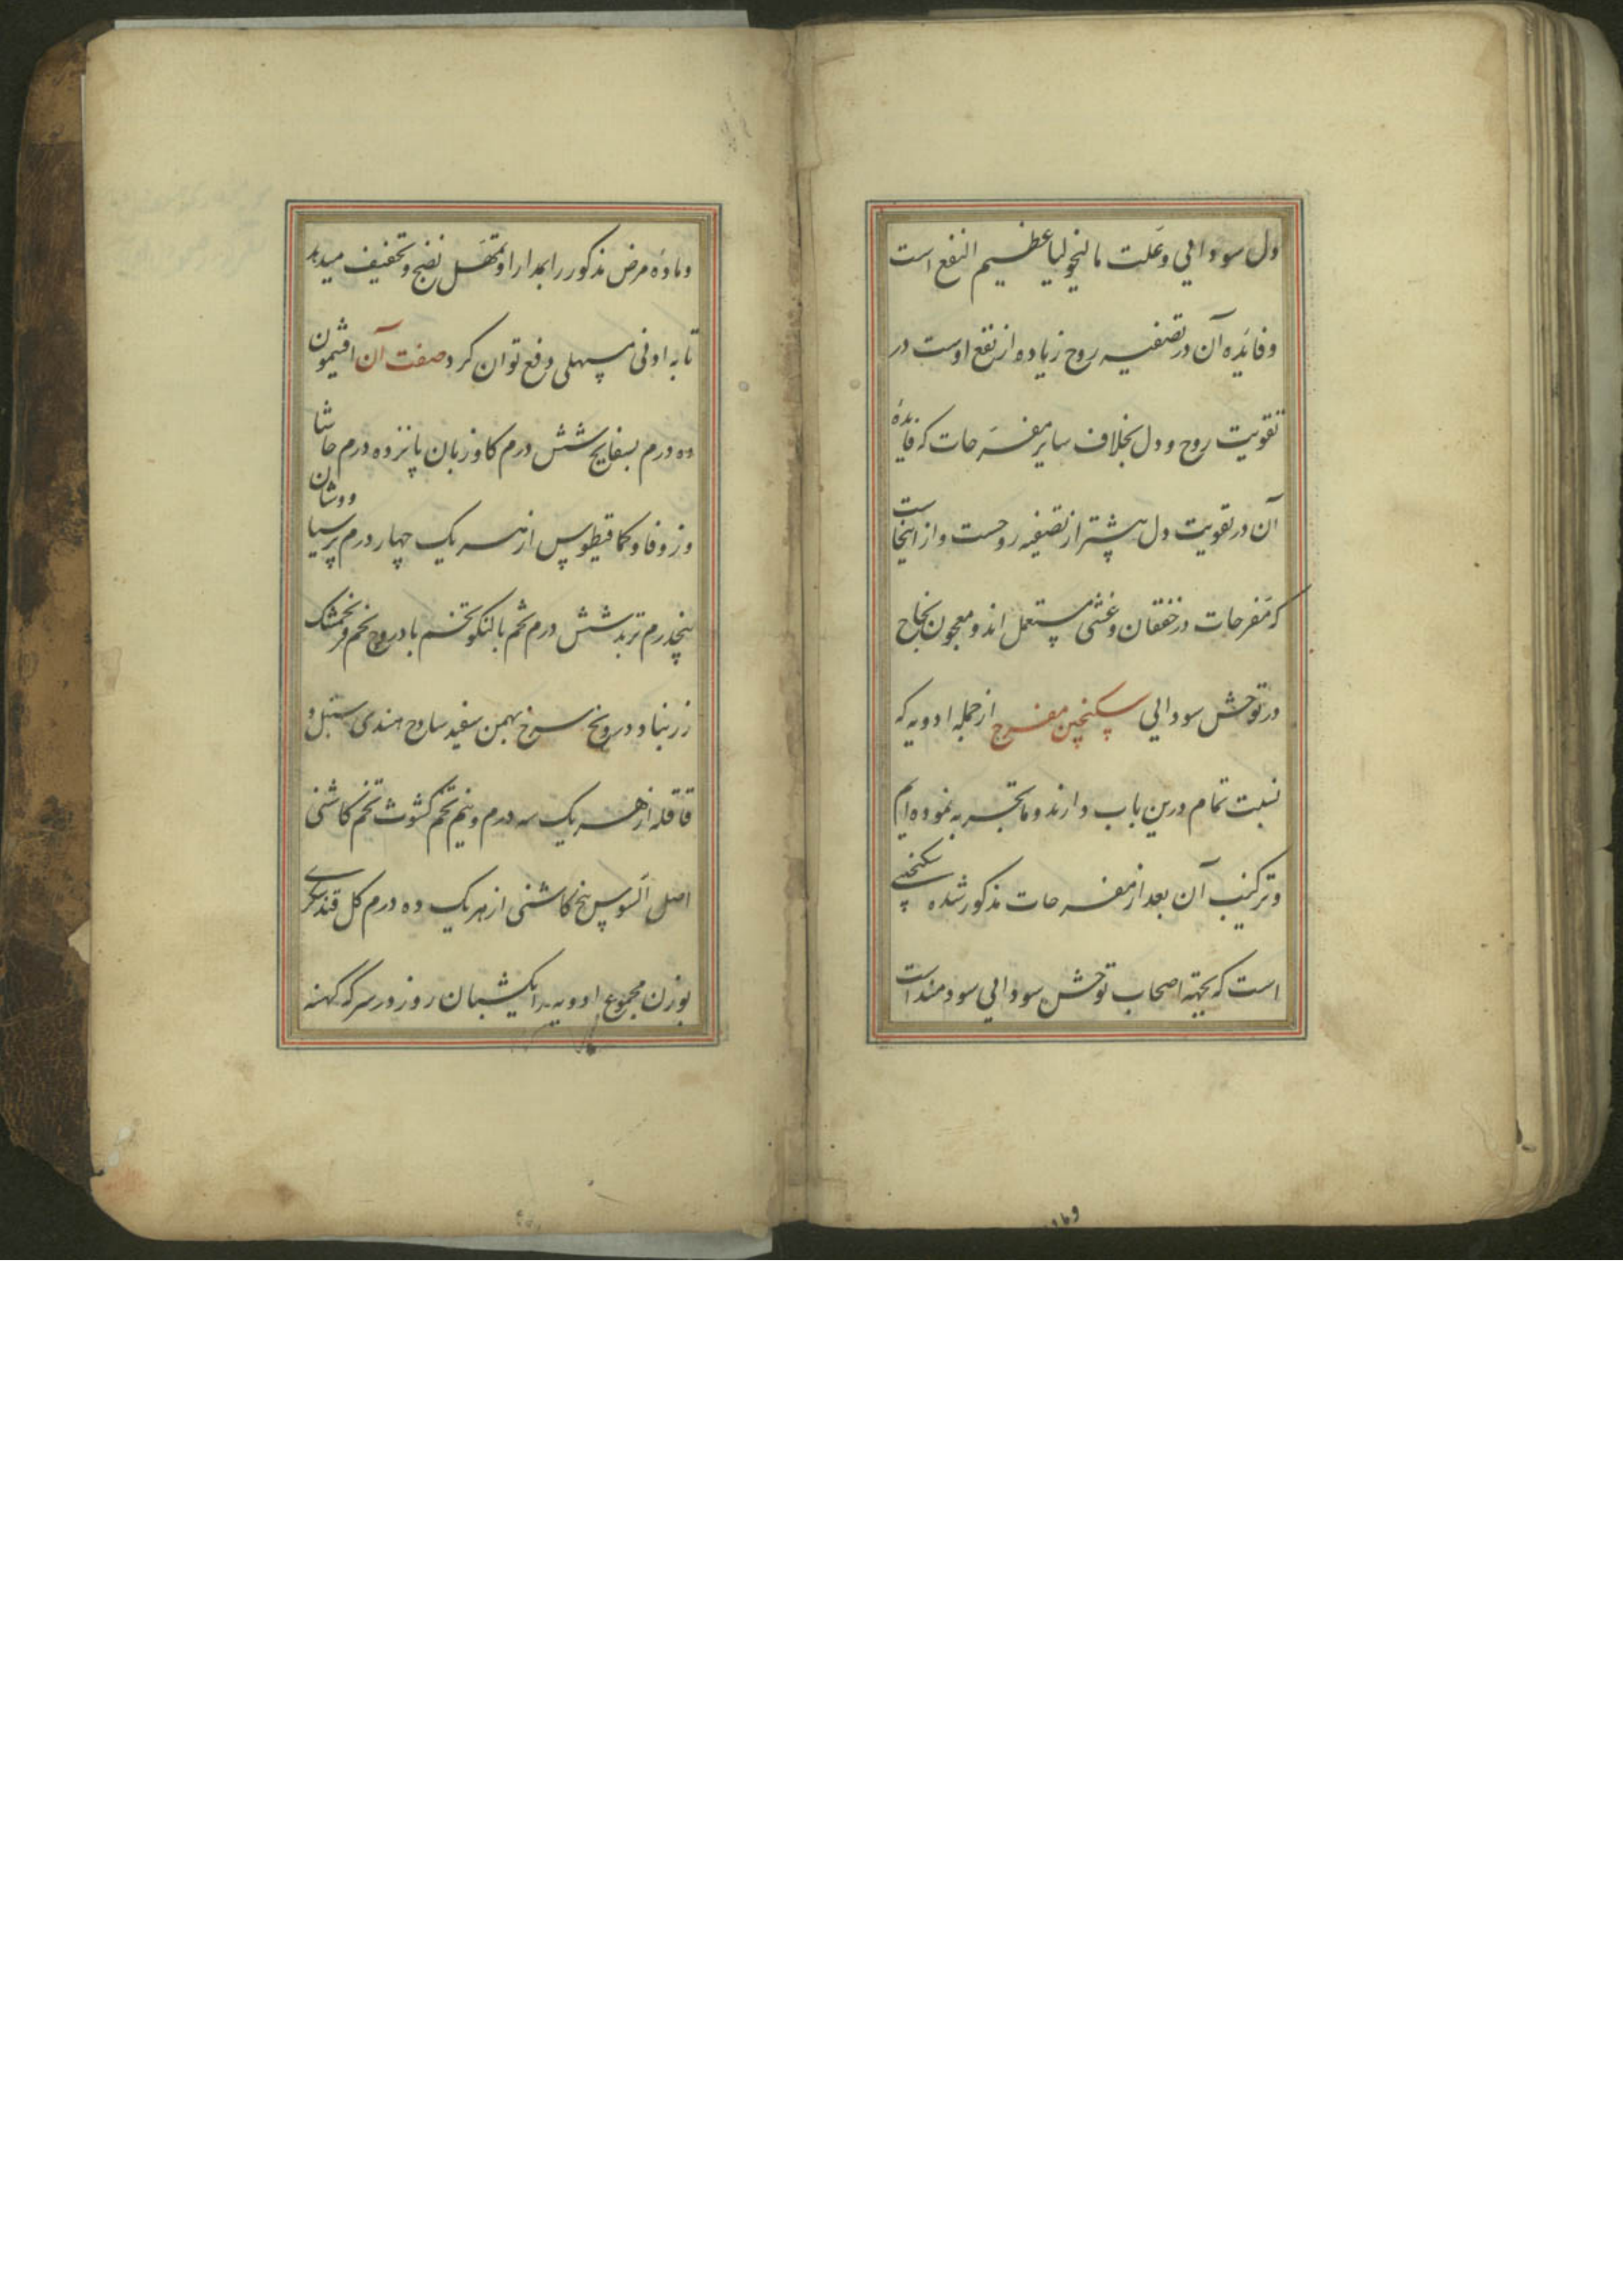 دل سودایی و علت مالیخولیا عظیم النفع است
و فائده آن در تصفیه روح زیاده از نفع اوست در
تقویت روح و دل بخلاف سایر مفرحات که فایدهٔ
آن در تقویت دل بیشتر از تصفیه روحست و از اینجاست
که مفرحات در خفقان و غشی مستعمل اند و معجون نجاح
در توحش سودایی سکنجبین مفرح از جمله ادویه که
نسبت تمام درین باب دارند و ما تجربه نموده ایم
و ترکیب آن بعد از مفرحات مذکور شده سکنجبینی
است که بجهته اصحاب توحش سودایی سودمند است
و مادهٔ مرض مذکور را بمدارا و تمهل نضج و تخفیف میدهد
تا به ادنی مسهلی دفع توان کرد صفت آن افتیمون
ده درم بسفایج شش درم کاوزبان پانزده درم حاشا
و زوفا و کمافیطوس از هر یک چهار درم پرسیاوشان
پنجدرم تربد شش درم تخم بالنکو تخم بادروج تخم فرنجمشک
زرنباد و درونج سرخ بهمن سفید سادج هندی سنبل و
قاقله از هر یک سه درم و نیم تخم کشوث تخم کاشنی
اصل السوس بیخ کاشنی از هر یک ده درم کل قند سکری
بوزن مجموع ادویه را یکشبان روز در سرکه کهنه